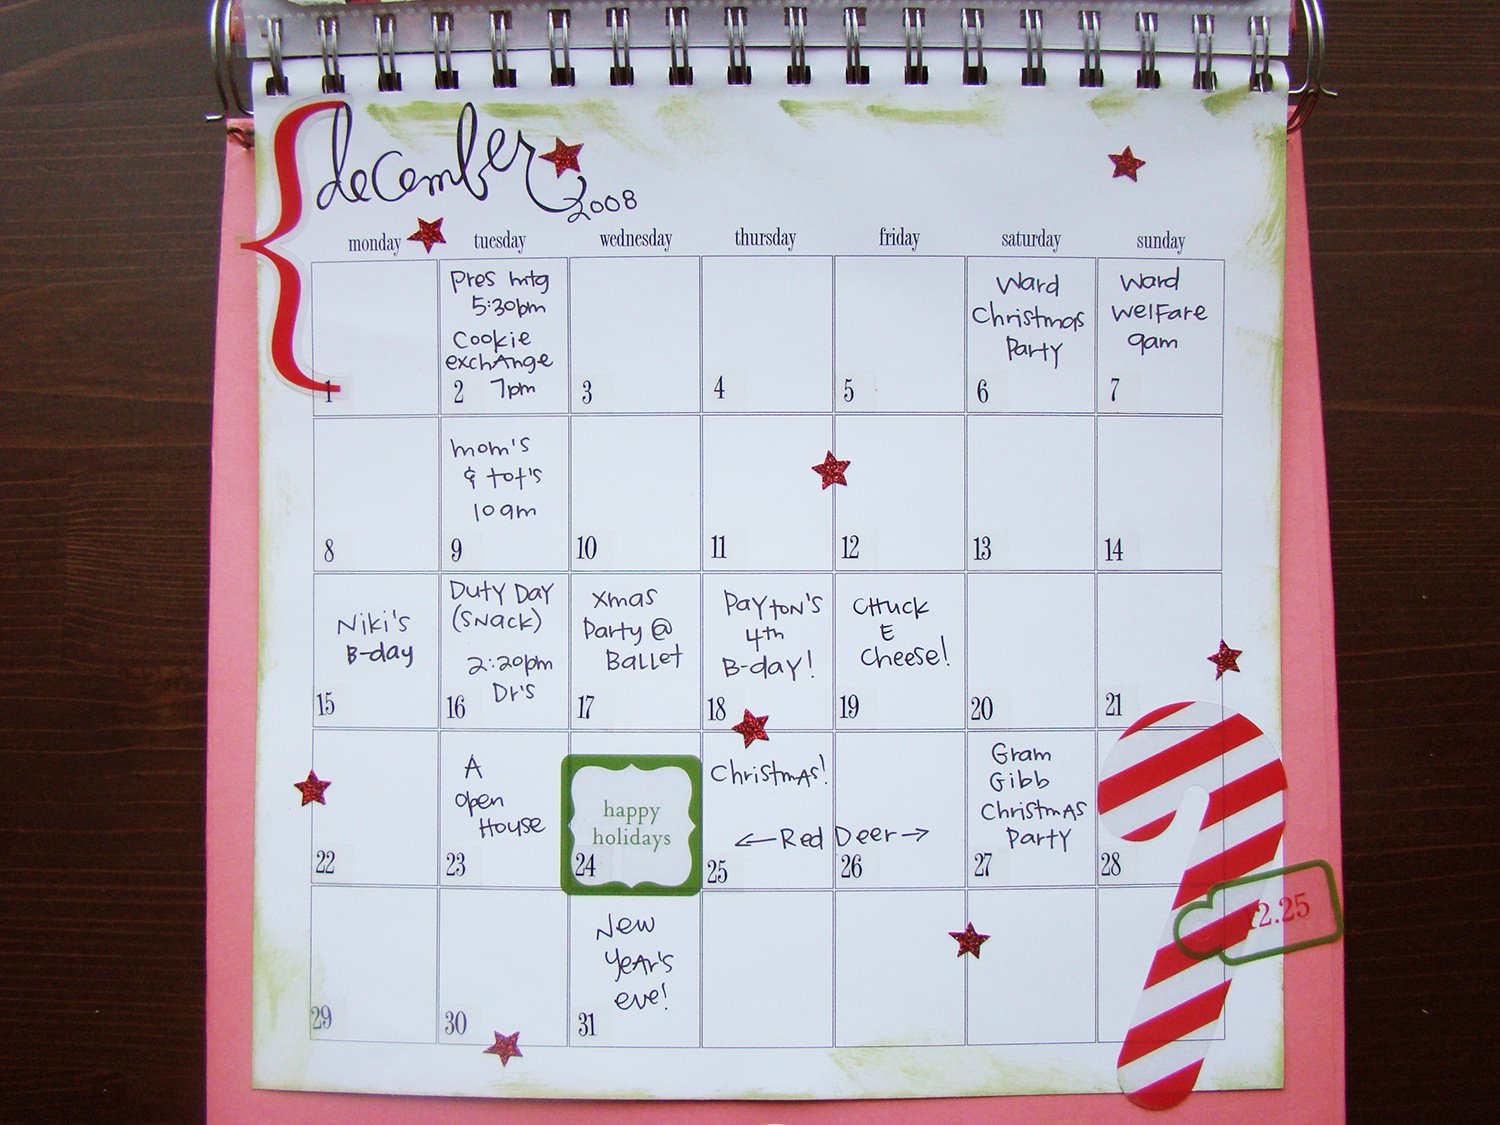 december
2008
monday tuesday wednesday thursday friday saturday sunday
1
Pres mtg
5:30pm
Cookie
exchAnge
2 7pm
3
4
5
Ward
Christmas
Party
6
Ward
Welfare
9am
7
8
mom's
& tot's
10am
9
10
11
12
13
14
Niki's
B-day
15
Duty Day
(SNack)
2:20pm
Dr's
16
Xmas
Party @
Ballet
17
Payton's
4th
B-day!
18
CHuck
E
Cheese!
19
20
21
22
A
open
House
23
happy
holidays
24
ChristmAs!
← Red Deer →
25
26
Gram
Gibb
ChristmAs
Party
27
28
12.25
29
30
New
YeAr's
eve!
31